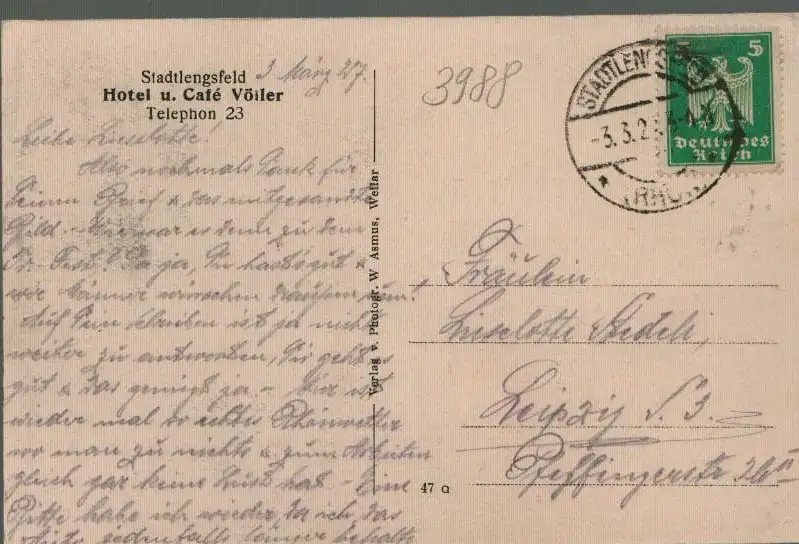 Stadtlengsfeld
Hotel u. Café Völler
Telephon 23
3 März 27.
Liebe Lieselotte!
Also nochmals Dank für
Deinen Brief & das mitgesandte
Bild. war es denn zu dem
Fest? Ja ja, Du hast's gut &
wir Männer
Auf Dein Schreiben ist ja nicht
weiter zu antworten, Dir geht es
gut & das genügt ja - Hier ist
wieder mal so echtes Rhönwetter
wo man zu nichts & zum Arbeiten
gleich gar keine Lust hat - Eine
Bitte habe ich wieder, da ich das
jedenfalls länger behalte
Verlag v. Photogr. W Asmus, Weilar
47 Q
3988
STADTLENGSFELD
-3.3.2
(RHÖN)
5
Deutsches
Reich
Fräulein
Lieselotte
Leipzig S. 3.
Pfeffingerstr. 26 II